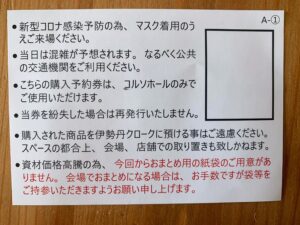 A-①
•新型コロナ感染予防の為、マスク着用のう
えご来場ください。
•当日は混雑が予想されます。なるべく公共
の交通機関をご利用ください。
•こちらの購入予約券は、コルソホールのみで
ご使用いただけます。
•当券を紛失した場合は再発行いたしません。
•購入された商品を伊勢丹クロークに預ける事はご遠慮ください。
スペースの都合上、会場、店舗での取り置きも致しかねます。
•資材価格高騰の為、今回からおまとめ用の紙袋のご用意があ
りません。会場でおまとめになる場合は、お手数ですが袋等を
ご持参いただきますようお願い申し上げます。